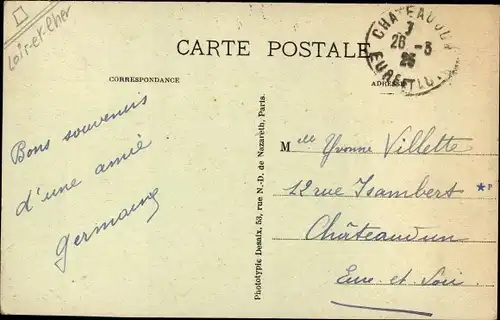 Loir-et-Cher
CARTE POSTALE
CHATEAUDUN
7
26 - 3
25
EURE ET LOIR
CORRESPONDANCE
ADRESSE
Bons souvenirs
d'une amie
Germaine
Phototypie Desaix, 53, rue N.-D. de Nazareth, Paris.
Mlle Yvonne Villette
12 rue Isambert
Châteaudun
Eure et Loir